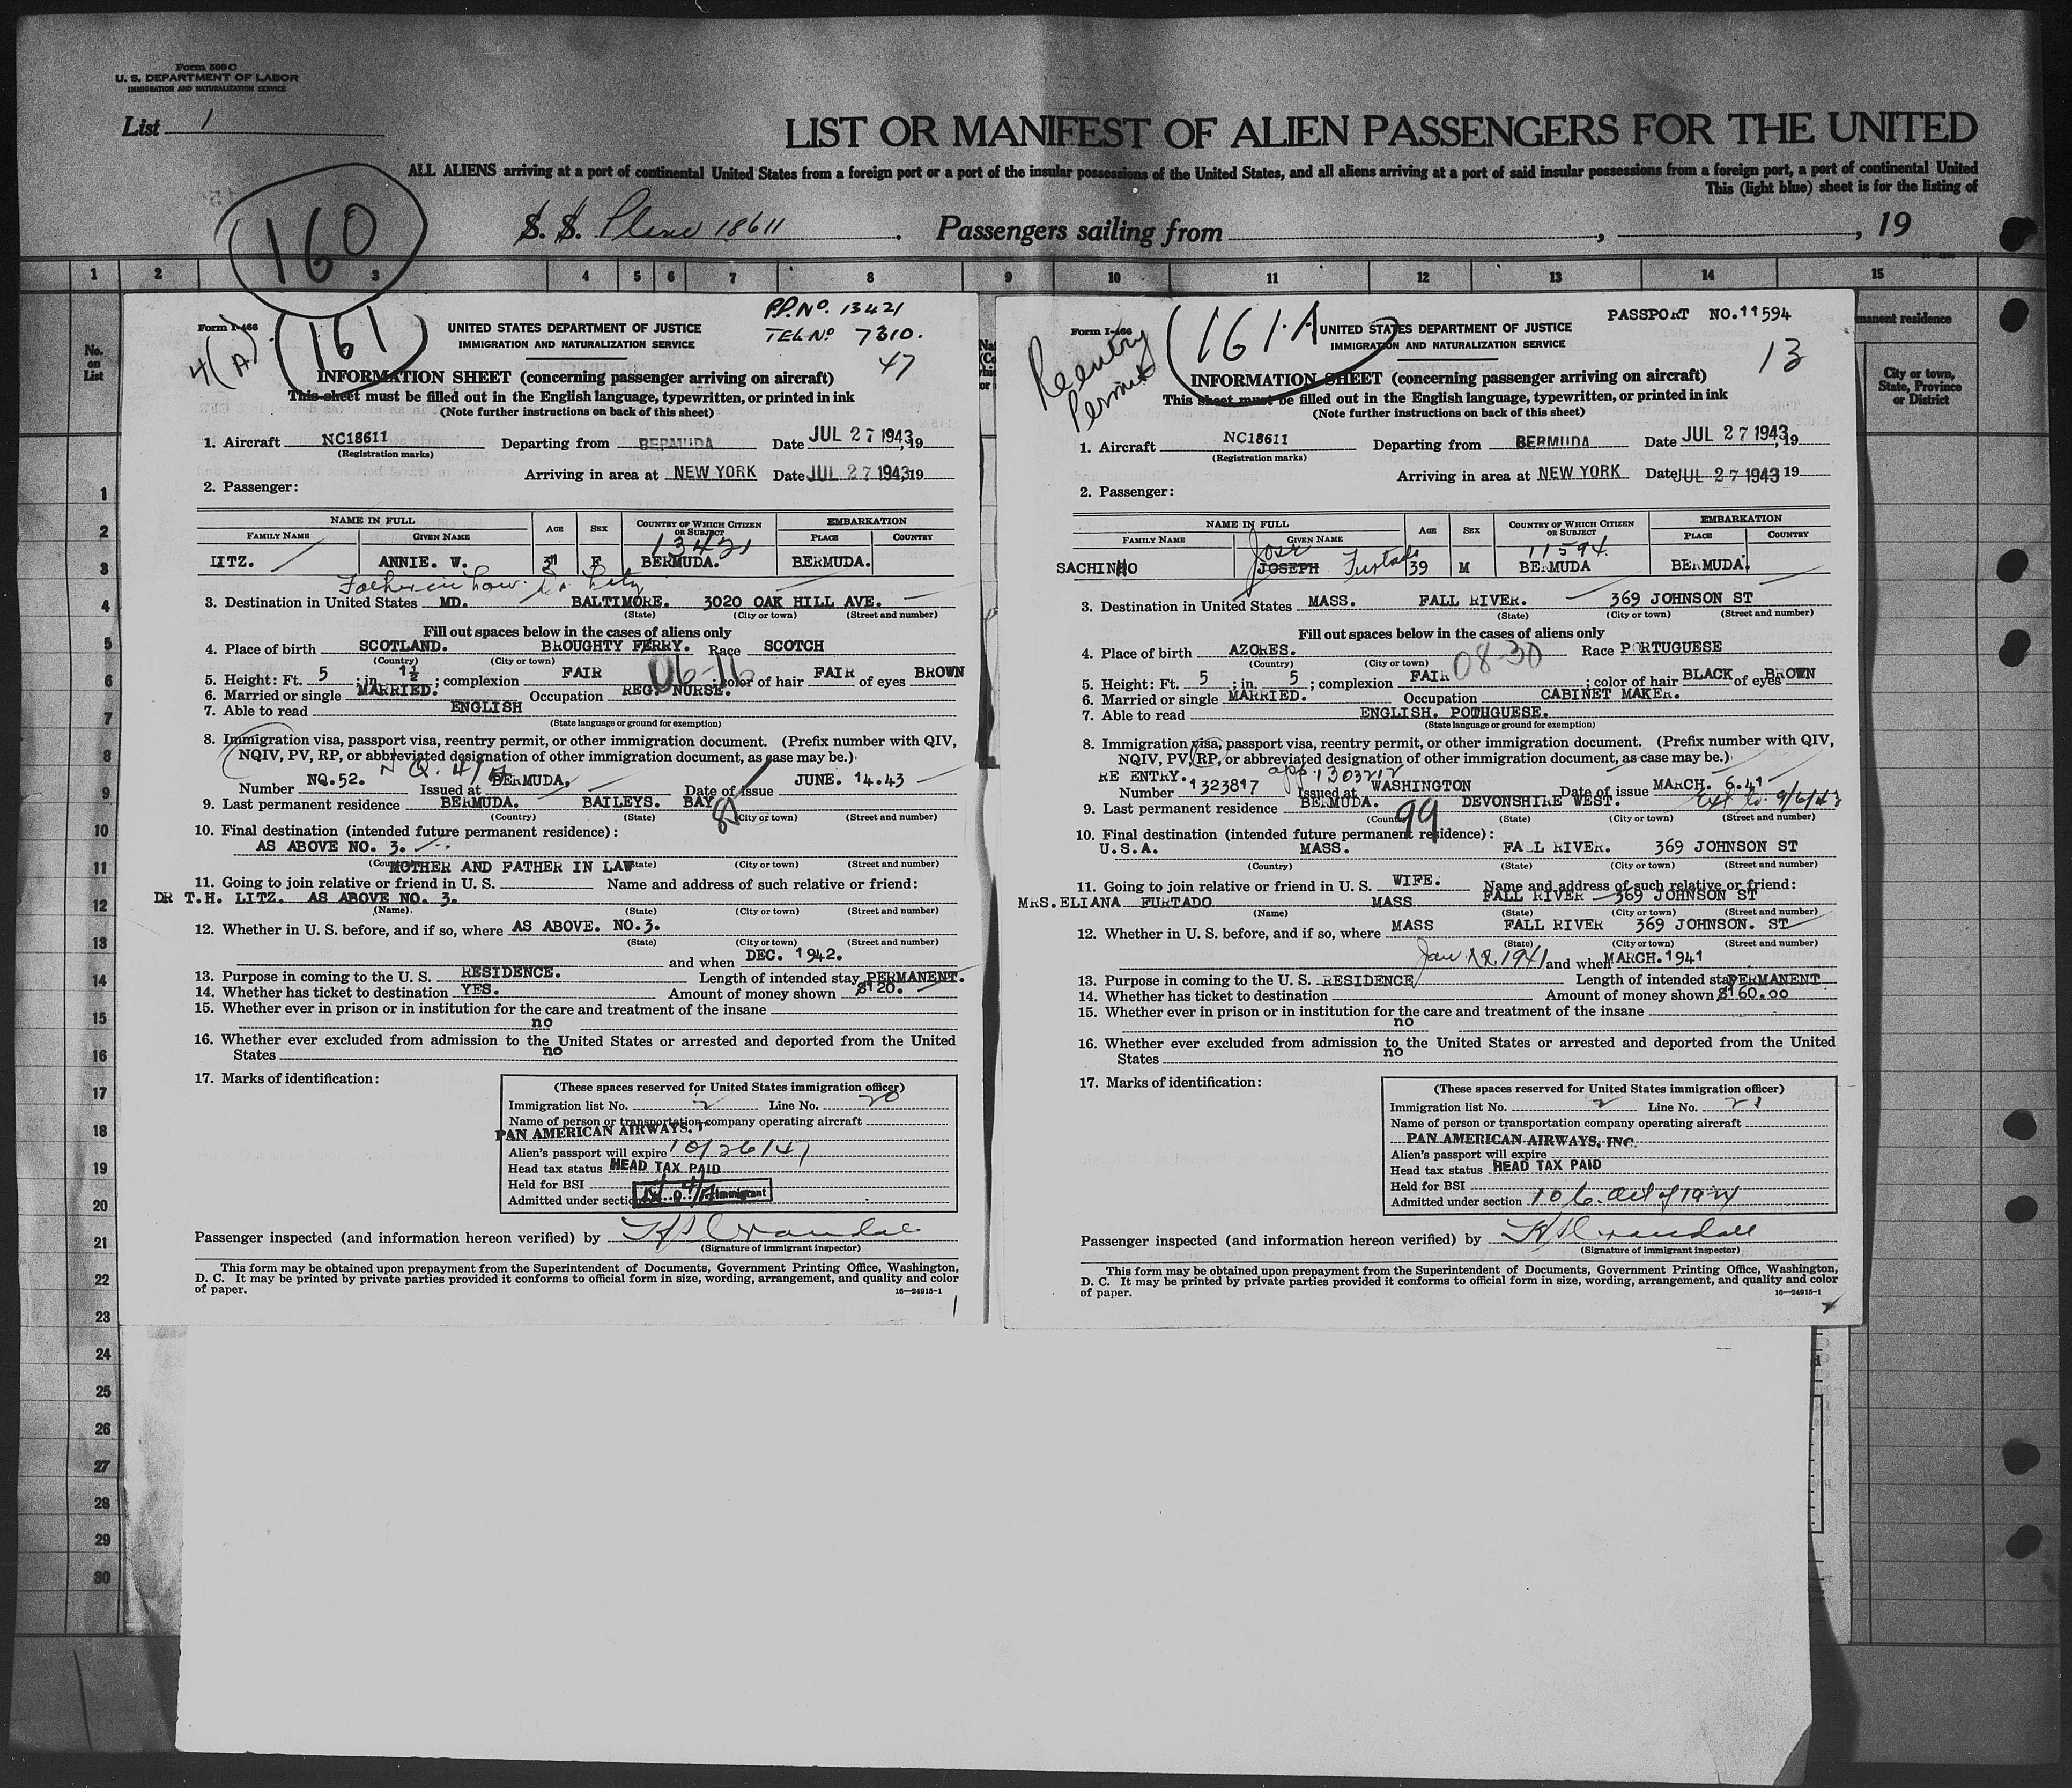 Form 500 C
U. S. DEPARTMENT OF LABOR
IMMIGRATION AND NATURALIZATION SERVICE
List 1
LIST OR MANIFEST OF ALIEN PASSENGERS FOR THE UNITED
ALL ALIENS arriving at a port of continental United States from a foreign port or a port of the insular possessions of the United States, and all aliens arriving at a port of said insular possessions from a foreign port, a port of continental United
This (light blue) sheet is for the listing of
160
S. S. Plane 18611 . Passengers sailing from , , 19
1 2 3 4 5 6 7 8 9 10 11 12 13 14 15
No. on List
1
2
3
4
5
6
7
8
9
10
11
12
13
14
15
16
17
18
19
20
21
22
23
24
25
26
27
28
29
30
manent residence
City or town, State, Province or District
P.P. No. 13421
TEL No 7310.
47
4(A)
Form I-466
161
UNITED STATES DEPARTMENT OF JUSTICE
IMMIGRATION AND NATURALIZATION SERVICE
INFORMATION SHEET (concerning passenger arriving on aircraft)
This sheet must be filled out in the English language, typewritten, or printed in ink
(Note further instructions on back of this sheet)
1. Aircraft NC18611 Departing from BERMUDA Date JUL 27 1943, 19
(Registration marks)
Arriving in area at NEW YORK Date JUL 27 1943, 19
2. Passenger:
NAME IN FULL AGE SEX COUNTRY OF WHICH CITIZEN OR SUBJECT EMBARKATION
FAMILY NAME GIVEN NAME PLACE COUNTRY
13421
LITZ. ANNIE. W. F BERMUDA. BERMUDA.
Father in Law. Dr. Litz
3. Destination in United States MD. BALTIMORE. 3020 OAK HILL AVE.
(State) (City or town) (Street and number)
Fill out spaces below in the cases of aliens only
4. Place of birth SCOTLAND. BROUGHTY FERRY. Race SCOTCH
(Country) (City or town)
06-16
5. Height: Ft. 5 ; in. 1½ ; complexion FAIR ; color of hair FAIR of eyes BROWN
6. Married or single MARRIED. Occupation REG. NURSE.
7. Able to read ENGLISH
(State language or ground for exemption)
8. Immigration visa, passport visa, reentry permit, or other immigration document. (Prefix number with QIV,
NQIV, PV, RP, or abbreviated designation of other immigration document, as case may be.)
Number NQ.52. Issued at BERMUDA, Date of issue JUNE. 14.43
9. Last permanent residence BERMUDA. BAILEYS. BAY
(Country) (State) (City or town) (Street and number)
10. Final destination (intended future permanent residence):
AS ABOVE NO. 3.
(Country) (State) (City or town) (Street and number)
MOTHER AND FATHER IN LAW
11. Going to join relative or friend in U. S. Name and address of such relative or friend:
DR T.H. LITZ. AS ABOVE NO. 3.
(Name) (State) (City or town) (Street and number)
12. Whether in U. S. before, and if so, where AS ABOVE. NO.3.
(State) (City or town) (Street and number)
and when DEC. 1942.
13. Purpose in coming to the U. S. RESIDENCE. Length of intended stay PERMANENT.
14. Whether has ticket to destination YES. Amount of money shown $120.
15. Whether ever in prison or in institution for the care and treatment of the insane
no
16. Whether ever excluded from admission to the United States or arrested and deported from the United
States no
17. Marks of identification:
(These spaces reserved for United States immigration officer)
Immigration list No. 2 Line No. 20
Name of person or transportation company operating aircraft
PAN AMERICAN AIRWAYS.
Alien's passport will expire 10/26/47
Head tax status HEAD TAX PAID
Held for BSI
Admitted under section Immigrant
Passenger inspected (and information hereon verified) by
(Signature of immigrant inspector)
This form may be obtained upon prepayment from the Superintendent of Documents, Government Printing Office, Washington,
D. C. It may be printed by private parties provided it conforms to official form in size, wording, arrangement, and quality and color
of paper.
16—24915-1
1
PASSPORT NO.11594
13
Reentry Permit
Form I-466
161A
UNITED STATES DEPARTMENT OF JUSTICE
IMMIGRATION AND NATURALIZATION SERVICE
INFORMATION SHEET (concerning passenger arriving on aircraft)
This sheet must be filled out in the English language, typewritten, or printed in ink
(Note further instructions on back of this sheet)
1. Aircraft NC18611 Departing from BERMUDA Date JUL 27 1943, 19
(Registration marks)
Arriving in area at NEW YORK Date JUL 27 1943 19
2. Passenger:
NAME IN FULL AGE SEX COUNTRY OF WHICH CITIZEN OR SUBJECT EMBARKATION
FAMILY NAME GIVEN NAME PLACE COUNTRY
Jose Furtado 11594
SACHINHO JOSEPH 39 M BERMUDA BERMUDA.
3. Destination in United States MASS. FALL RIVER. 369 JOHNSON ST
(State) (City or town) (Street and number)
Fill out spaces below in the cases of aliens only
4. Place of birth AZORES. Race PORTUGUESE
(Country) (City or town)
08-30
5. Height: Ft. 5 ; in. 5 ; complexion FAIR ; color of hair BLACK of eyes BROWN
6. Married or single MARRIED. Occupation CABINET MAKER.
7. Able to read ENGLISH. POTHGUESE.
(State language or ground for exemption)
8. Immigration visa, passport visa, reentry permit, or other immigration document. (Prefix number with QIV,
NQIV, PV, RP, or abbreviated designation of other immigration document, as case may be.)
RE ENTRY. app. 1303212
Number 1323817 Issued at WASHINGTON Date of issue MARCH. 6.41
Ext to. 9/6/43
9. Last permanent residence BERMUDA. DEVONSHIRE WEST.
(Country) (State) (City or town) (Street and number)
99
10. Final destination (intended future permanent residence):
U.S.A. MASS. FALL RIVER. 369 JOHNSON ST
(Country) (State) (City or town) (Street and number)
11. Going to join relative or friend in U. S. WIFE. Name and address of such relative or friend:
MRS.ELIANA FURTADO MASS FALL RIVER 369 JOHNSON ST
(Name) (State) (City or town) (Street and number)
12. Whether in U. S. before, and if so, where MASS FALL RIVER 369 JOHNSON. ST
(State) (City or town) (Street and number)
Jan. 12. 1941 and when MARCH.1941
13. Purpose in coming to the U. S. RESIDENCE Length of intended stay PERMANENT
14. Whether has ticket to destination Amount of money shown $160.00
15. Whether ever in prison or in institution for the care and treatment of the insane
no
16. Whether ever excluded from admission to the United States or arrested and deported from the United
States no
17. Marks of identification:
(These spaces reserved for United States immigration officer)
Immigration list No. 2 Line No. 21
Name of person or transportation company operating aircraft
PAN AMERICAN AIRWAYS, INC.
Alien's passport will expire
Head tax status HEAD TAX PAID
Held for BSI
Admitted under section 10 b. Act of 1924
Passenger inspected (and information hereon verified) by
(Signature of immigrant inspector)
This form may be obtained upon prepayment from the Superintendent of Documents, Government Printing Office, Washington,
D. C. It may be printed by private parties provided it conforms to official form in size, wording, arrangement, and quality and color
of paper.
16—24915-1